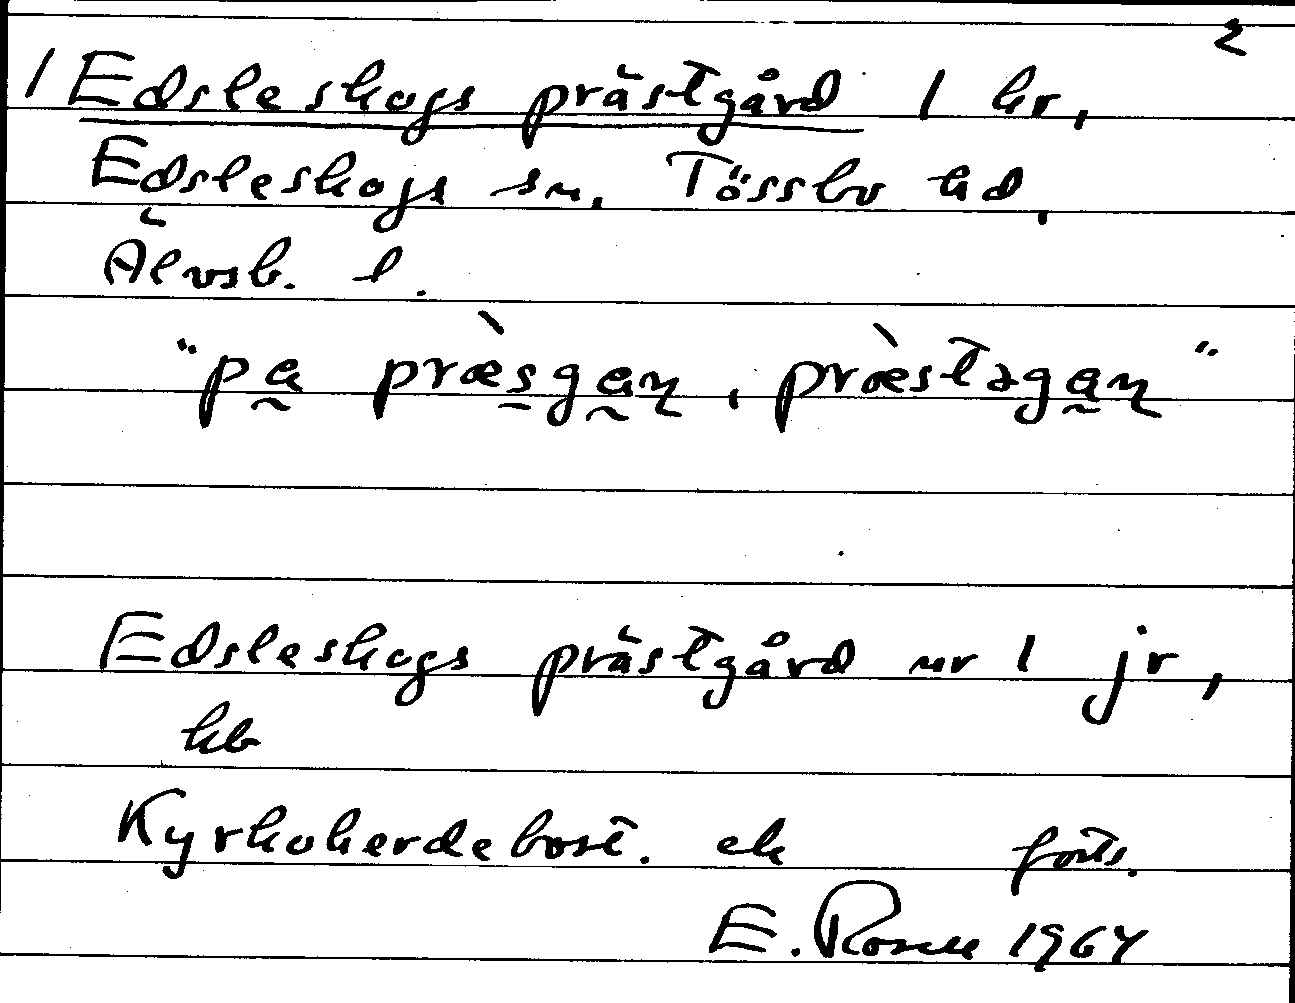 2
1 Edsleskogs prästgård 1 hr,
Edsleskogs sn, Tössbo hd,
Älvsb. l.
"pa præ̀sgaɳ, præ̀stəgaɳ"
Edsleskogs prästgård nr 1 jr,
hb
Kyrkoherdebost. ek forts.
E. Rosell 1964